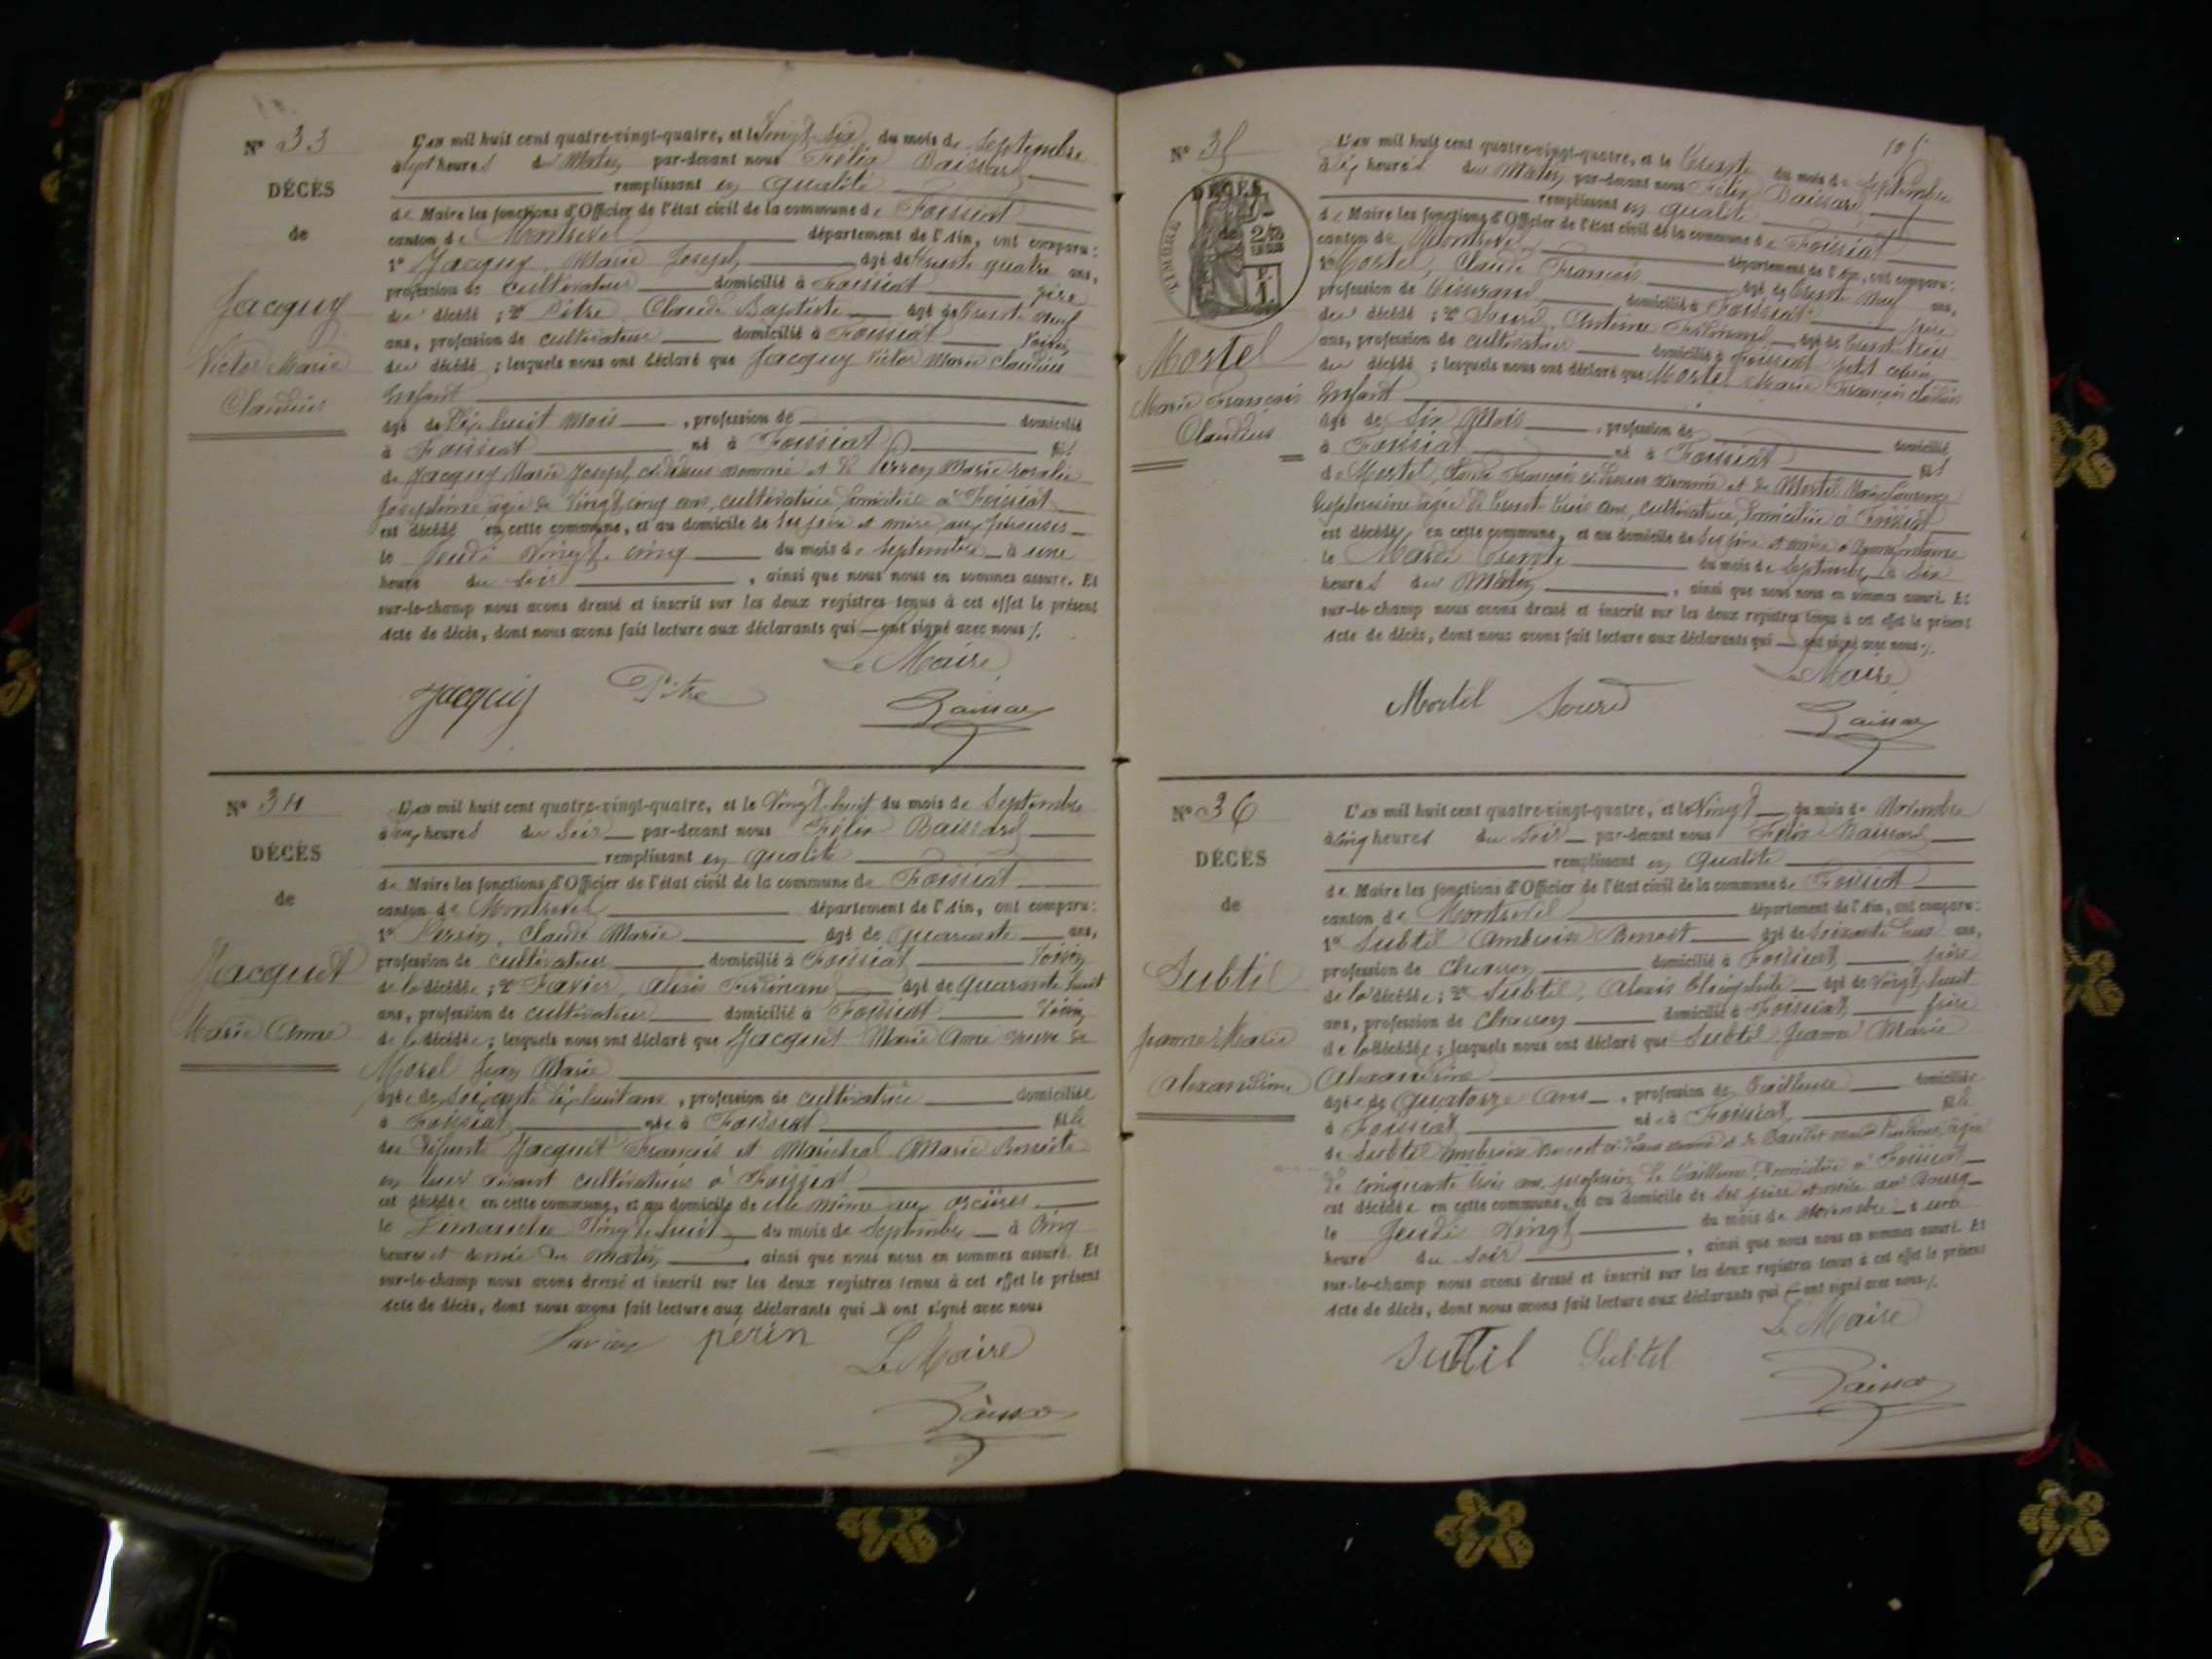 N° 33
DÉCÈS
de
Jacquy
Victor Marie
Claudius
L'an mil huit cent quatre-vingt-quatre, et le Vingt six du mois de Septembre
à sept heures du Matin par-devant nous Félix Baissard
remplissant en qualité
de Maire les fonctions d'Officier de l'état civil de la commune de Foissiat
canton de Montrevel département de l'Ain, ont comparu:
1° Jacquy, Marie Joseph âgé de trente quatre ans,
profession de cultivateur domicilié à Foissiat père
du décédé ; 2° Pitre, Claude Baptiste âgé de trente neuf
ans, profession de cultivateur domicilié à Foissiat voisin
du décédé ; lesquels nous ont déclaré que Jacquy Victor Marie Claudius
Enfant
âgé de dix huit mois , profession de domicilié
à Foissiat né à Foissiat fils
de Jacquy Marie Joseph, ci dessus nommé et de Perron Marie Rosalie
Joséphine âgée de vingt cinq ans, cultivatrice domiciliée à Foissiat
est décédé en cette commune, et au domicile de ses père et mère aux
le Jeudi Vingt cinq du mois de Septembre à une
heure du soir , ainsi que nous nous en sommes assuré. Et
sur-le-champ nous avons dressé et inscrit sur les deux registres tenus à cet effet le présent
Acte de décès, dont nous avons fait lecture aux déclarants qui ont signé avec nous /.
Le Maire
Jacquy Pitre Baissard
N° 34
DÉCÈS
de
Jacquet
Marie Anne
L'an mil huit cent quatre-vingt-quatre, et le Vingt huit du mois de Septembre
à heures du Soir par-devant nous Félix Baissard
remplissant en qualité
de Maire les fonctions d'Officier de l'état civil de la commune de Foissiat
canton de Montrevel département de l'Ain, ont comparu:
1° Perrin, Claude Marie âgé de quarante ans,
profession de cultivateur domicilié à Foissiat Voisin
de la décédée ; 2° Favier, Alexis Ferdinand âgé de quarante huit
ans, profession de cultivateur domicilié à Foissiat Voisin
de la décédée ; lesquels nous ont déclaré que Jacquet Marie Anne veuve de
Morel Jean Marie
âgée de soixante dix huit ans , profession de cultivatrice domiciliée
à Foissiat née à Foissiat fille
des défunts Jacquet François et Maréchal Marie Benoite
en leur vivant cultivateurs à Foissiat
est décédée en cette commune, et au domicile de elle même aux
le Dimanche Vingt huit du mois de Septembre à cinq
heures et demie du matin , ainsi que nous nous en sommes assuré. Et
sur-le-champ nous avons dressé et inscrit sur les deux registres tenus à cet effet le présent
Acte de décès, dont nous avons fait lecture aux déclarants qui ont signé avec nous
Favier perin Le Maire
Baissard
105
N° 35
DÉCÈS
de
TIMBRE
Mortel
Marie François
Claudius
L'an mil huit cent quatre-vingt-quatre, et le trente du mois de Septembre
à dix heures du Matin par-devant nous Félix Baissard
remplissant en qualité
de Maire les fonctions d'Officier de l'état civil de la commune de Foissiat
canton de Montrevel département de l'Ain, ont comparu:
1° Mortel, Claude François âgé de trente neuf ans,
profession de Tisserand domicilié à Foissiat père
du décédé ; 2° Sourd, Antoine Ferdinand âgé de trente trois
ans, profession de cultivateur domicilié à Foissiat petit cousin
du décédé ; lesquels nous ont déclaré que Mortel Marie François Claudius
Enfant
âgé de six mois , profession de domicilié
à Foissiat né à Foissiat fils
de Mortel, Claude François ci dessus nommé et de Mortel Marie Laurence
âgée de trente trois ans, cultivatrice, domiciliée à Foissiat
est décédé en cette commune, et au domicile de ses père et mère à
le Mardi trente du mois de Septembre à six
heures du Matin , ainsi que nous nous en sommes assuré. Et
sur-le-champ nous avons dressé et inscrit sur les deux registres tenus à cet effet le présent
Acte de décès, dont nous avons fait lecture aux déclarants qui ont signé avec nous /.
Le Maire
Mortel Sourd Baissard
N° 36
DÉCÈS
de
Subtil
Jeanne Marie
Alexandrine
L'an mil huit cent quatre-vingt-quatre, et le Vingt du mois de Novembre
à cinq heures du Soir par-devant nous Félix Baissard
remplissant en qualité
de Maire les fonctions d'Officier de l'état civil de la commune de Foissiat
canton de Montrevel département de l'Ain, ont comparu:
1° Subtil Ambroise Benoit âgé de soixante deux ans,
profession de Charron domicilié à Foissiat père
de la décédée ; 2° Subtil, Alexis Théophile âgé de vingt huit
ans, profession de Charron domicilié à Foissiat frère
de la décédée ; lesquels nous ont déclaré que Subtil Jeanne Marie
Alexandrine
âgée de Quatorze ans , profession de Tailleuse domiciliée
à Foissiat née à Foissiat fille
de Subtil Ambroise Benoit ci dessus nommé et de âgée
de cinquante trois ans, profession de Tailleuse, domiciliée à Foissiat
est décédée en cette commune, et au domicile de ses père et mère au Bourg
le Jeudi Vingt du mois de Novembre à une
heure du soir , ainsi que nous nous en sommes assuré. Et
sur-le-champ nous avons dressé et inscrit sur les deux registres tenus à cet effet le présent
Acte de décès, dont nous avons fait lecture aux déclarants qui ont signé avec nous /.
Le Maire
Subtil Subtil Baissard